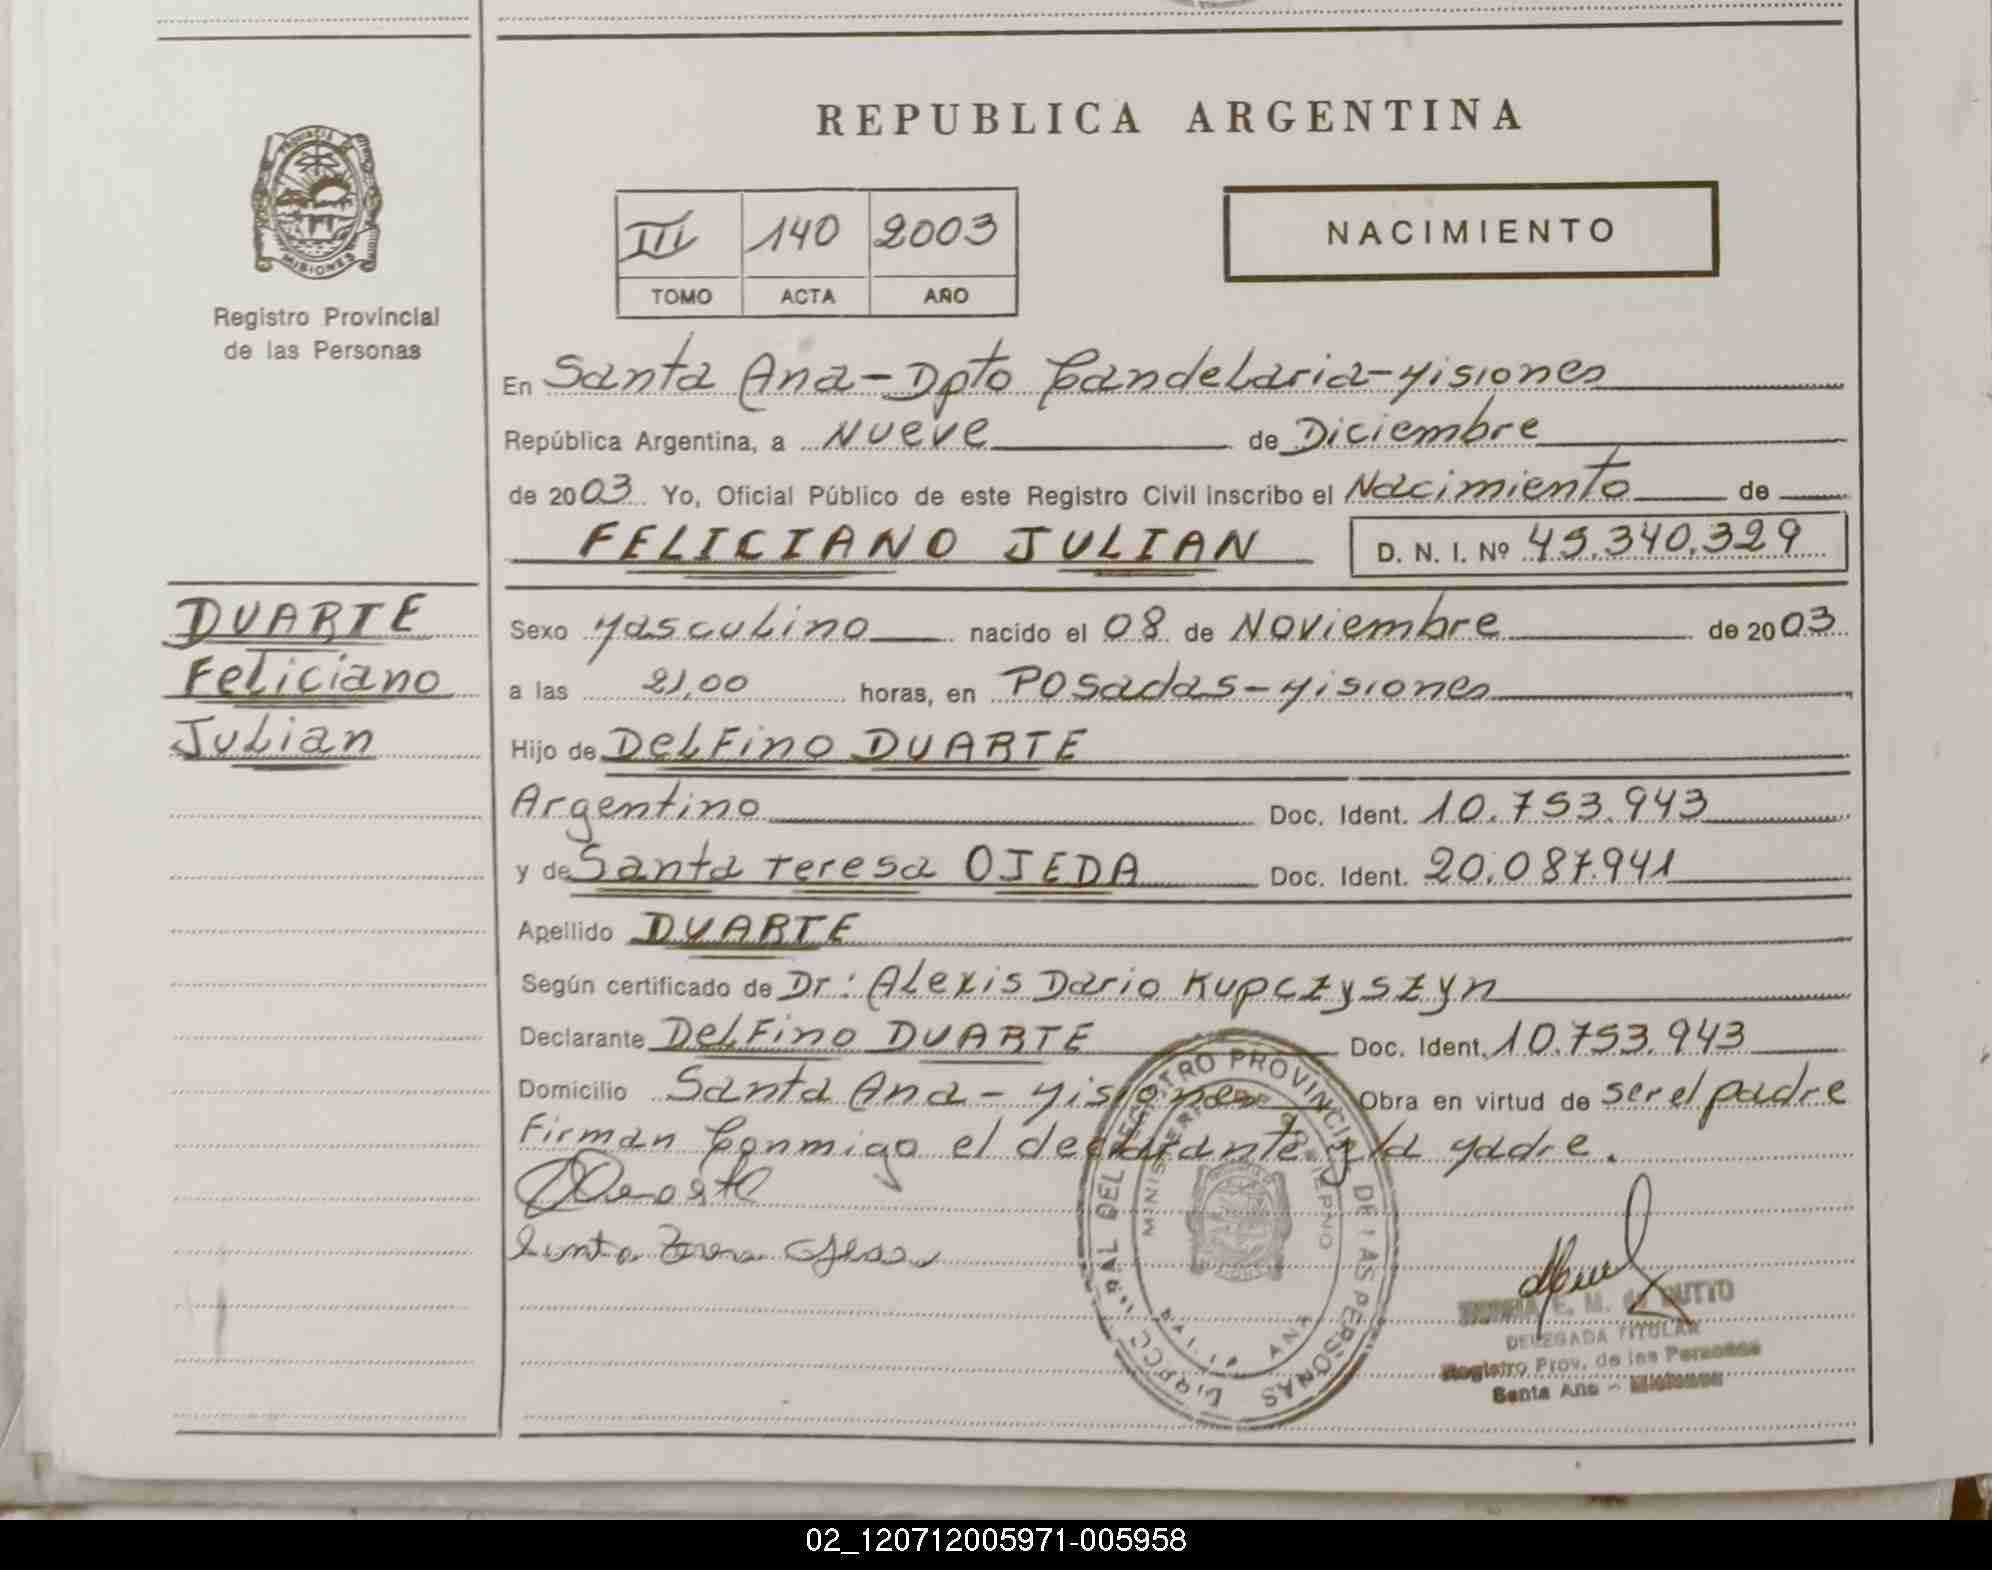 REPUBLICA ARGENTINA
PROVINCIA DE MISIONES
Registro Provincial
de las Personas
III 140 2003
TOMO ACTA AÑO
NACIMIENTO
En Santa Ana - Dpto Candelaria - Misiones
República Argentina, a Nueve de Diciembre
de 2003 Yo, Oficial Público de este Registro Civil inscribo el Nacimiento de
FELICIANO JULIAN D. N. I. Nº 45.340.329
DUARTE
Feliciano
Julian
Sexo Masculino nacido el 08 de Noviembre de 2003
a las 21,00 horas, en Posadas - Misiones
Hijo de Delfino DUARTE
Argentino Doc. Ident. 10.753.943
y de Santa Teresa OJEDA Doc. Ident. 20.087.941
Apellido DUARTE
Según certificado de Dr: Alexis Dario Kupczyszyn
Declarante Delfino DUARTE Doc. Ident. 10.753.943
Domicilio Santa Ana - Misiones Obra en virtud de ser el padre
Firman Conmigo el declarante y la Madre.
Santa Teresa Ojeda
REGISTRO PROVINCIAL DE LAS PERSONAS
MINISTERIO DE GOBIERNO
E. M. de DUTTO
DELEGADA TITULAR
Registro Prov. de las Personas
Santa Ana - Misiones
02_120712005971-005958